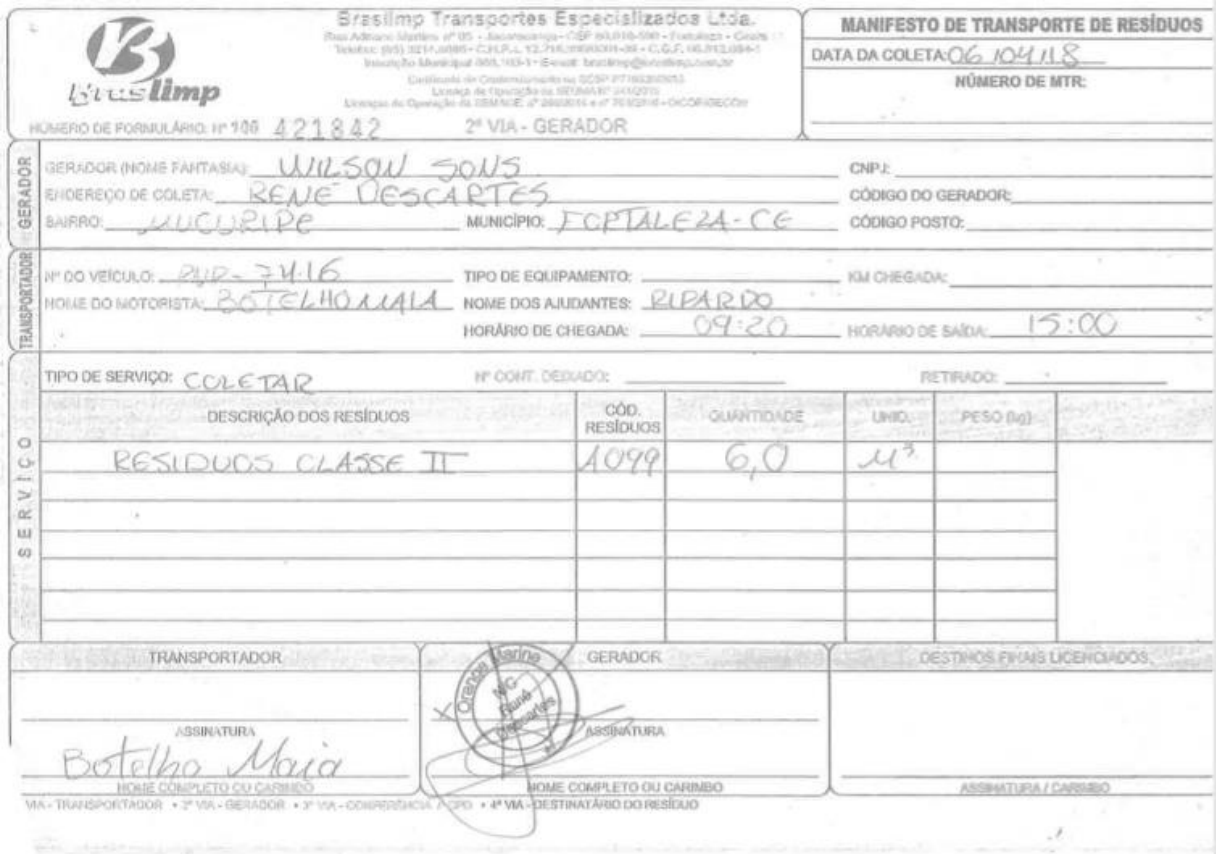 Brasilimp Transportes Especializados Ltda.
Braslimp
NÚMERO DE FORMULÁRIO: Nº 100 421842
2ª VIA - GERADOR
MANIFESTO DE TRANSPORTE DE RESÍDUOS
DATA DA COLETA: 06/04/18
NÚMERO DE MTR:
GERADOR
GERADOR (NOME FANTASIA): WILSON SONS CNPJ:
ENDEREÇO DE COLETA: RENÉ DESCARTES CÓDIGO DO GERADOR:
BAIRRO: MUCURIPE MUNICÍPIO: FORTALEZA-CE CÓDIGO POSTO:
TRANSPORTADOR
Nº DO VEÍCULO: 7416 TIPO DE EQUIPAMENTO: KM CHEGADA:
NOME DO MOTORISTA: BOTELHO MAIA NOME DOS AJUDANTES: RIPARDO
HORÁRIO DE CHEGADA: 09:20 HORÁRIO DE SAÍDA: 15:00
SERVIÇO
TIPO DE SERVIÇO: COLETAR Nº CONT. DEIXADO: RETIRADO:
DESCRIÇÃO DOS RESÍDUOS CÓD. RESÍDUOS QUANTIDADE UNID. PESO (kg)
RESIDUOS CLASSE II A099 6,0 M³
TRANSPORTADOR GERADOR DESTINOS FINAIS LICENCIADOS
Orange Marine
N/C
René
Descartes
ASSINATURA ASSINATURA
Botelho Maia
NOME COMPLETO OU CARIMBO NOME COMPLETO OU CARIMBO ASSINATURA / CARIMBO
VIA - TRANSPORTADOR • 2ª VIA - GERADOR • 3ª VIA - CONFERÊNCIA / CPD • 4ª VIA - DESTINATÁRIO DO RESÍDUO